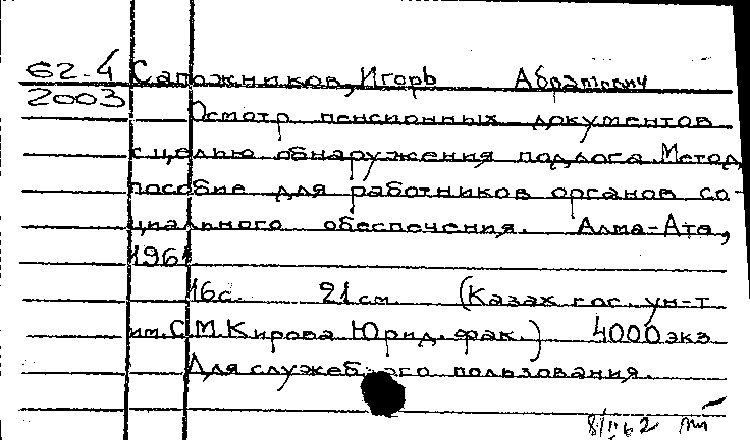 62-4 Сапожников, Игорь Абрамович
2003
Осмотр пенсионных документов
с целью обнаружения подлога. Метод.
пособие для работников органов со-
циального обеспечения. Алма-Ата,
1961
16с. 21см. (Казах гос. ун-т
им. С.М.Кирова Юрид. фак.) 4000 экз
Для служебного пользования.
8/II 62